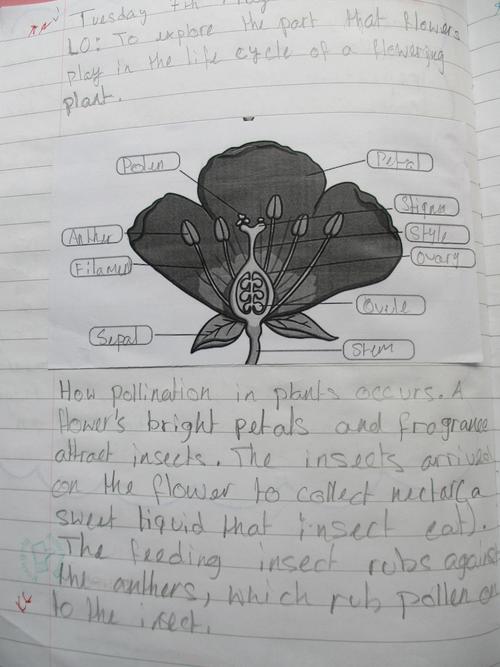 Tuesday 7th May
LO: To explore the part that flowers
play in the life cycle of a flowering
plant.
Pollen
Petal
Stigma
Anther
Style
Filament
Ovary
Ovule
Sepal
Stem
How pollination in plants occurs. A
flower's bright petals and fragrance
attract insects. The insects arrived
on the flower to collect nectar(a
sweet liquid that insect eat).
The feeding insect rubs against
the anthers, which rub pollen on
to the insect.